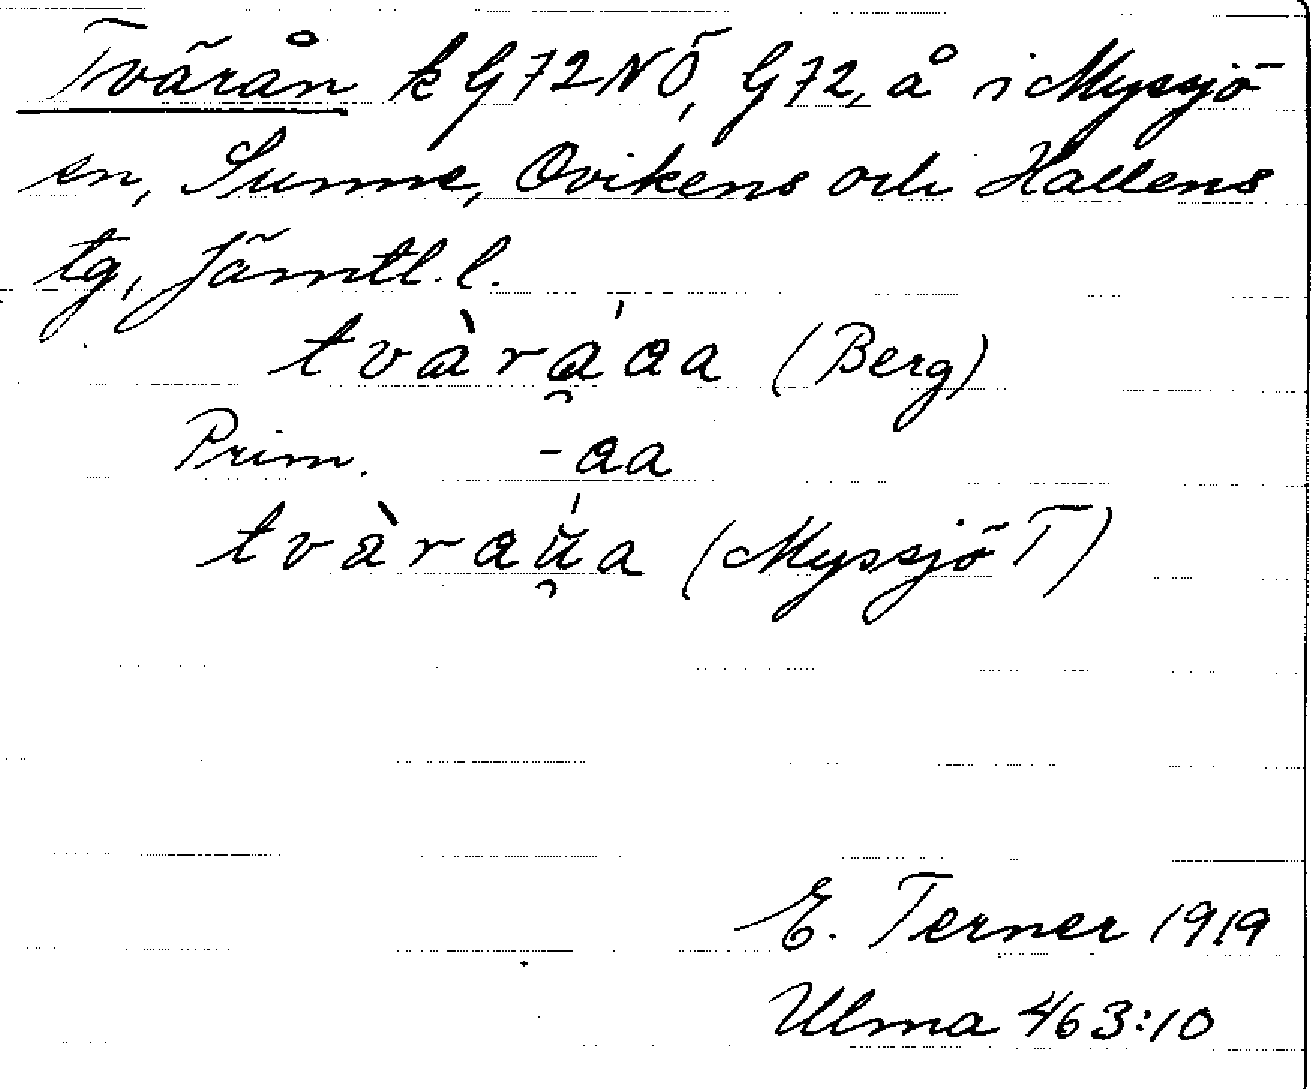 Tvärån k G72NÖ, G72, å i Myssjö
en, Sunne, Ovikens och Hallens
tg, Jämtl. l.
tvàrá̯aa (Berg)
Prim. -aa
tvàraú̯a (Myssjö T)
E. Terner 1919
Ulma 463:10